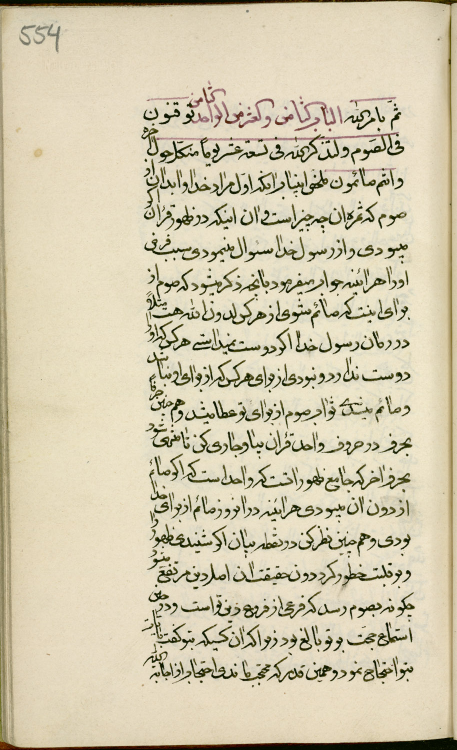 554
ثم بامر الله الباب الثامن والعشر من الواحد الثامن توقنون
فی الصوم ولتذکر الله فی تسعة عشر یوماً من کل حول آخره
وانتم صائمون ملخص این باب آنکه اول مراد خداوند از
صوم که ثمره آن چه چیز است فی آن اینکه در ظهور قرآن
میبودی و از رسول خدا سئوال مینمودی سبب فرض
اورا هر آئینه جواب میفرمود بآنچه ذکر میشود که صوم از
برای اینست که صائم شوی از هر کس که لدون الله هست مثلا
در زمان رسول خدا اگر دوست نمیداشتی هر کس که او را
دوست ندارد و نبودی از برای هر کس که از برای او نباشد
و صائم میشدی ثواب صوم از برای تو عطا میشد و هم چنین حرفا
بحرف در حروف واحد قرآن بیا و جاری کن تا منتهی شود
بحرف آخر که جامع ظهورات کل واحد است که اگر صائم
از دون آن میبودی هر آئینه در آن روز صائم از برای خدا
بودی و هم چنین نظر کن در نقطه بیان اگر شنیدی ظهور او را
و بر قلبت خطور کرد دون حقیقت آن اصل دین مرتفع میشود
چگونه بصوم رسد که فرعی از فروع دین تو است و در حین
استماع حجت بر تو بالغ بود زیرا که آن کسیکه بتو گفت بآیات الله
بتو احتجاج نمود و همین قدر که محتجب ماندی احتجاب از اجابة